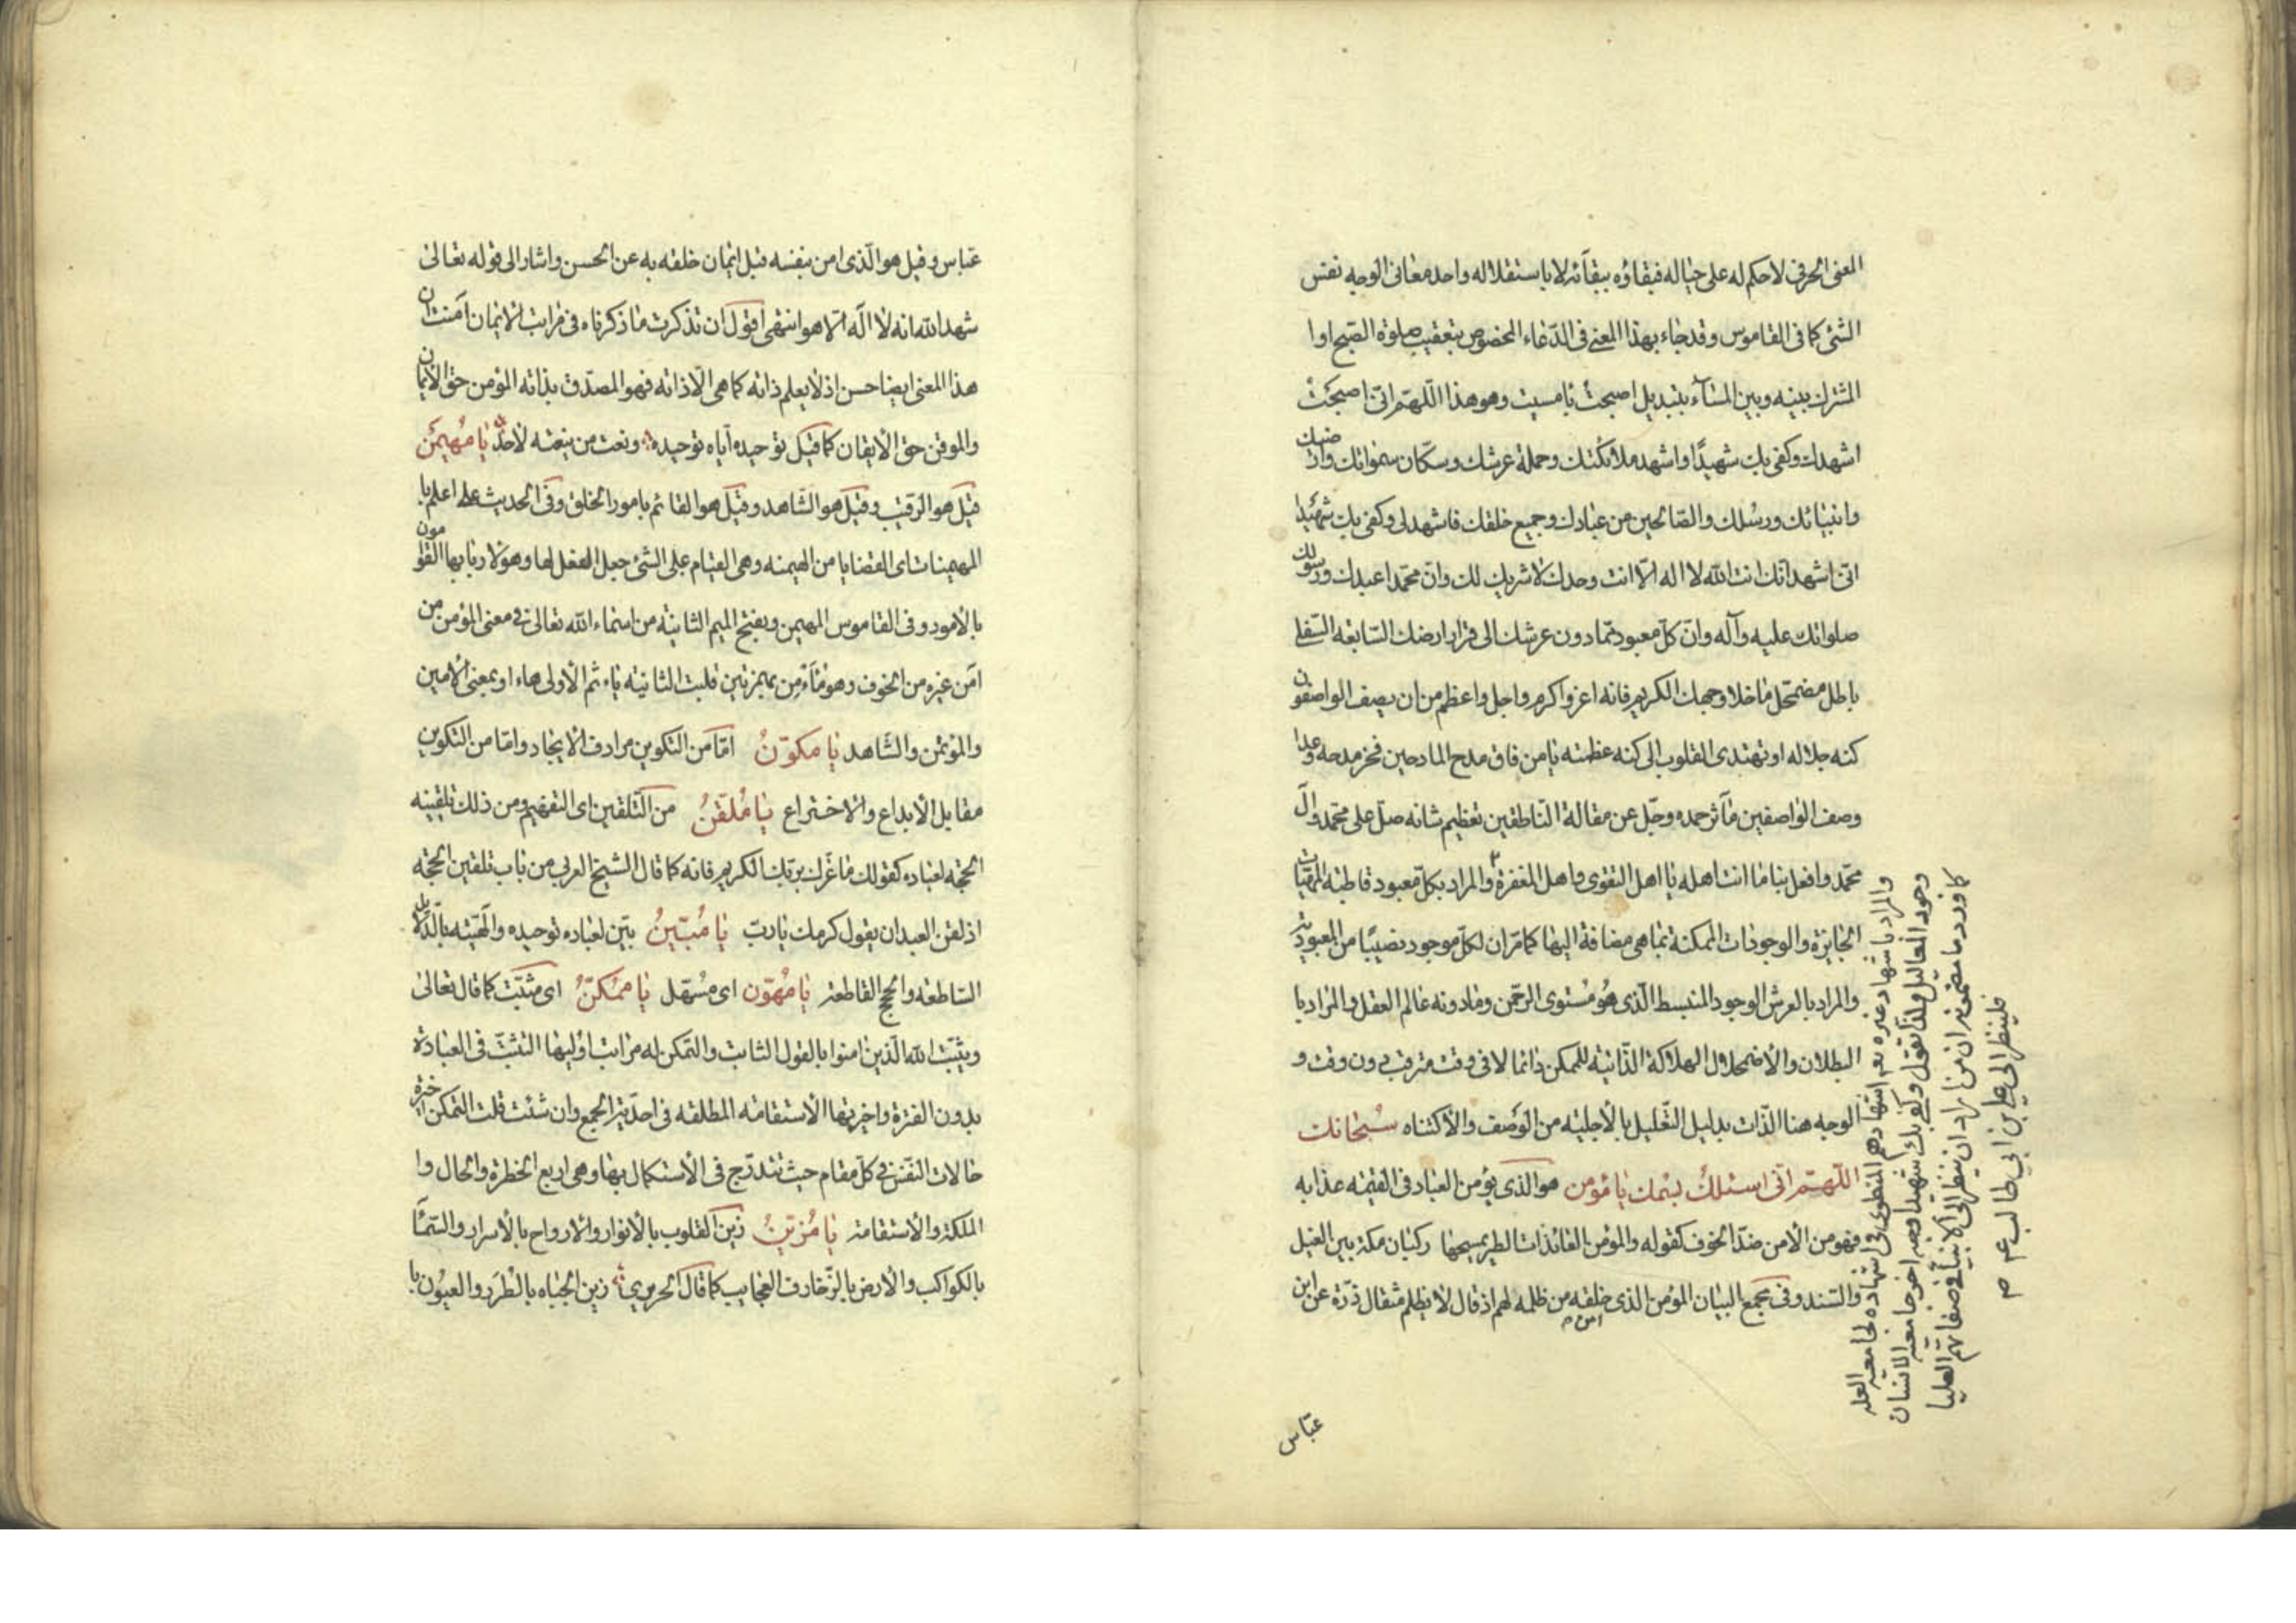 المعنى الحرفى لا حكم له على حياله فبقاؤه ببقائه لا باستقلاله واحد معانى الوجه نفس
الشئ كما فى القاموس وقد جاء بهذا المعنى فى الدّعاء المخصوص بتعقيب صلوة الصّبح او ا
المشترك بينه وبين المسآء بتبديل اصبحتُ بامسيت وهو هذا اللّهمّ انّى اصبحتُ
اشهدك وكفى بك شهيدًا واشهد ملائكتك وحملة عرشك وسكّان سمواتك وارضيك
وانبيائك ورسلك والصّالحين من عبادك وجميع خلقك فاشهد لى وكفى بك شهيدا
انّى اشهد انّك انت الله لا اله الّا انت وحدك لا شريك لك وانّ محمّدا عبدك ورسولك
صلواتك عليه وآله وانّ كلّ معبود ممّا دون عرشك الى قرار ارضك السّابعة السّفلى
باطل مضمحلّ ما خلا وجهك الكريم فانه اعز واكرم واجل واعظم من ان يصف الواصفون
كنه جلاله او تهتدى القلوب الى كنه عظمته يا من فاق مدح المادحين فخر مدحه وعدا
وصف الواصفين مآثر حمده وجلّ عن مقالة النّاطقين تعظيم شانه صلّ على محمّد وال
محمّد وافعل بنا ما انت اهله يا اهل التقوى واهل المغفرة والمراد بكلّ معبود قاطبة المهيّات
الجايزة والوجودات الممكنة بما هى مضافة اليها كما مرّ ان لكلّ موجود نصيبًا من المعبوديّة
والمراد بالعرش الوجود المنبسط الّذى هُو مُستوى الرحمن ومادونه عالم العقل والمراد با
البطلان والاضمحلال الهلاكة الذّاتية للممكن دائما لا فى وقت مترقب دون وقت و
الوجه هنا الذّات بدليل التّعليل بالأجلية من الوَصف والأكتناه سُبحانك
اللّهمّ انّى اسئلك بسمك يا مُؤمن هو الذى يؤمن العباد فى القيمة عذابه
فهو من الأمن ضدّ الخوف كقوله والمؤمن العائذات الطير يمسحها ركبان مكّة بين الغيل
والسّند وفى مجمع البيان المؤمن الذى خلقه من ظلمه لهم اذ قال لا يظلم مثقال ذرّة عن ابن
امن
عبّاس
والمراد باشهاد غيره بعد اشهادهم المنطوى فى شهاده لجامعية العلة
وجود المعاليل ولذا تقول وكفى بك شهيدا وجه اخر جامعية الانسان
كما ورد ما مضمونه ان من اراد ان ينظر الى الأنبياء فى صفاتهم العليا
فلينظر الى على بن ابى طالب عم م
عبّاس وقيل هو الّذى امن بنفسه قبل ايمان خلقه به عن الحسن واشار الى قوله تعالى
شهد الله انه لا اله الّا هو انتهى اقول ان تذكرت ما ذكرناه فى مراتب الايمان آمنت ان
هذا المعنى ايضا حسن اذ لا يعلم ذاته كما هى الّا ذاته فهو المصدّق بذاته المؤمن حق الأيمان
والموقن حق الأيقان كما قيل توحيده اياه توحيده ونعت من ينعته لاحدٌ يا مُهيمَن
قيل هو الرّقيب وقيل هو الشّاهد وقيل هو القائم بامور الخلق وفى الحديث على اعلم با
المهيمنات اى القضايا من الهيمنه وهى القيام على الشئ جعل الفعل لها وهو لاربابها القوامون
بالأمور وفى القاموس المهيمن وبفتح الميم الثانية من اسماء الله تعالى فى معنى المؤمن من
امن غيره من الخوف وهو مأَءْمِن بهمزتين قلبت الثانية ياء ثم الأولى هاء او بمعنى الأمين
والمؤتمن والشّاهد يا مكوّنُ امّا من التكوين مرادف الايجاد وامّا من التكوين
مقابل الأبداع والاختراع يا مُلقّنُ من التّلقين اى التفهيم ومن ذلك تلقينه
الحجّة لعباده كقولك ما غرّك بربّك الكريم فانه كما قال الشيخ العربى من باب تلقين الحجّة
اذ لقن العبد ان يقول كرمك يا ربّ يا مُبيّنُ بيّن لعباده توحيده والٓهيته بالدّلائل
السّاطعة والحجج القاطعة يا مُهوّن اى مُسهّل يا ممُكنّ اى مثبّت كما قال تعالى
ويثبّت الله الّذين امنوا بالقول الثابت والتمكن له مراتب اوليها التثبّت فى العبادة
بدون الفترة واخيرتها الأستقامة المطلقة فى احديّة الجمع وان شئت قلت التمكن اخيرة
حالات النفس فى كلّ مقام حيث تتدرّج فى الأستكمال بها وهى اربع الخطرة والحال وا
الملكة والأستقامة يا مُزيّنُ زين القلوب بالأنوار والارواح بالأسرار والسّمآء
بالكواكب والأرض بالزّخارف العجايب كما قال الحريرى زين الجباه بالطُرَر والعيُون با